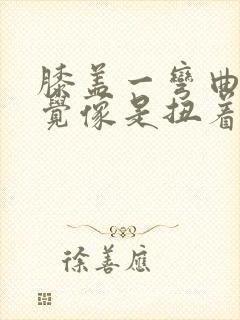 膝盖一彎曲
覺像是扭着
徐善應